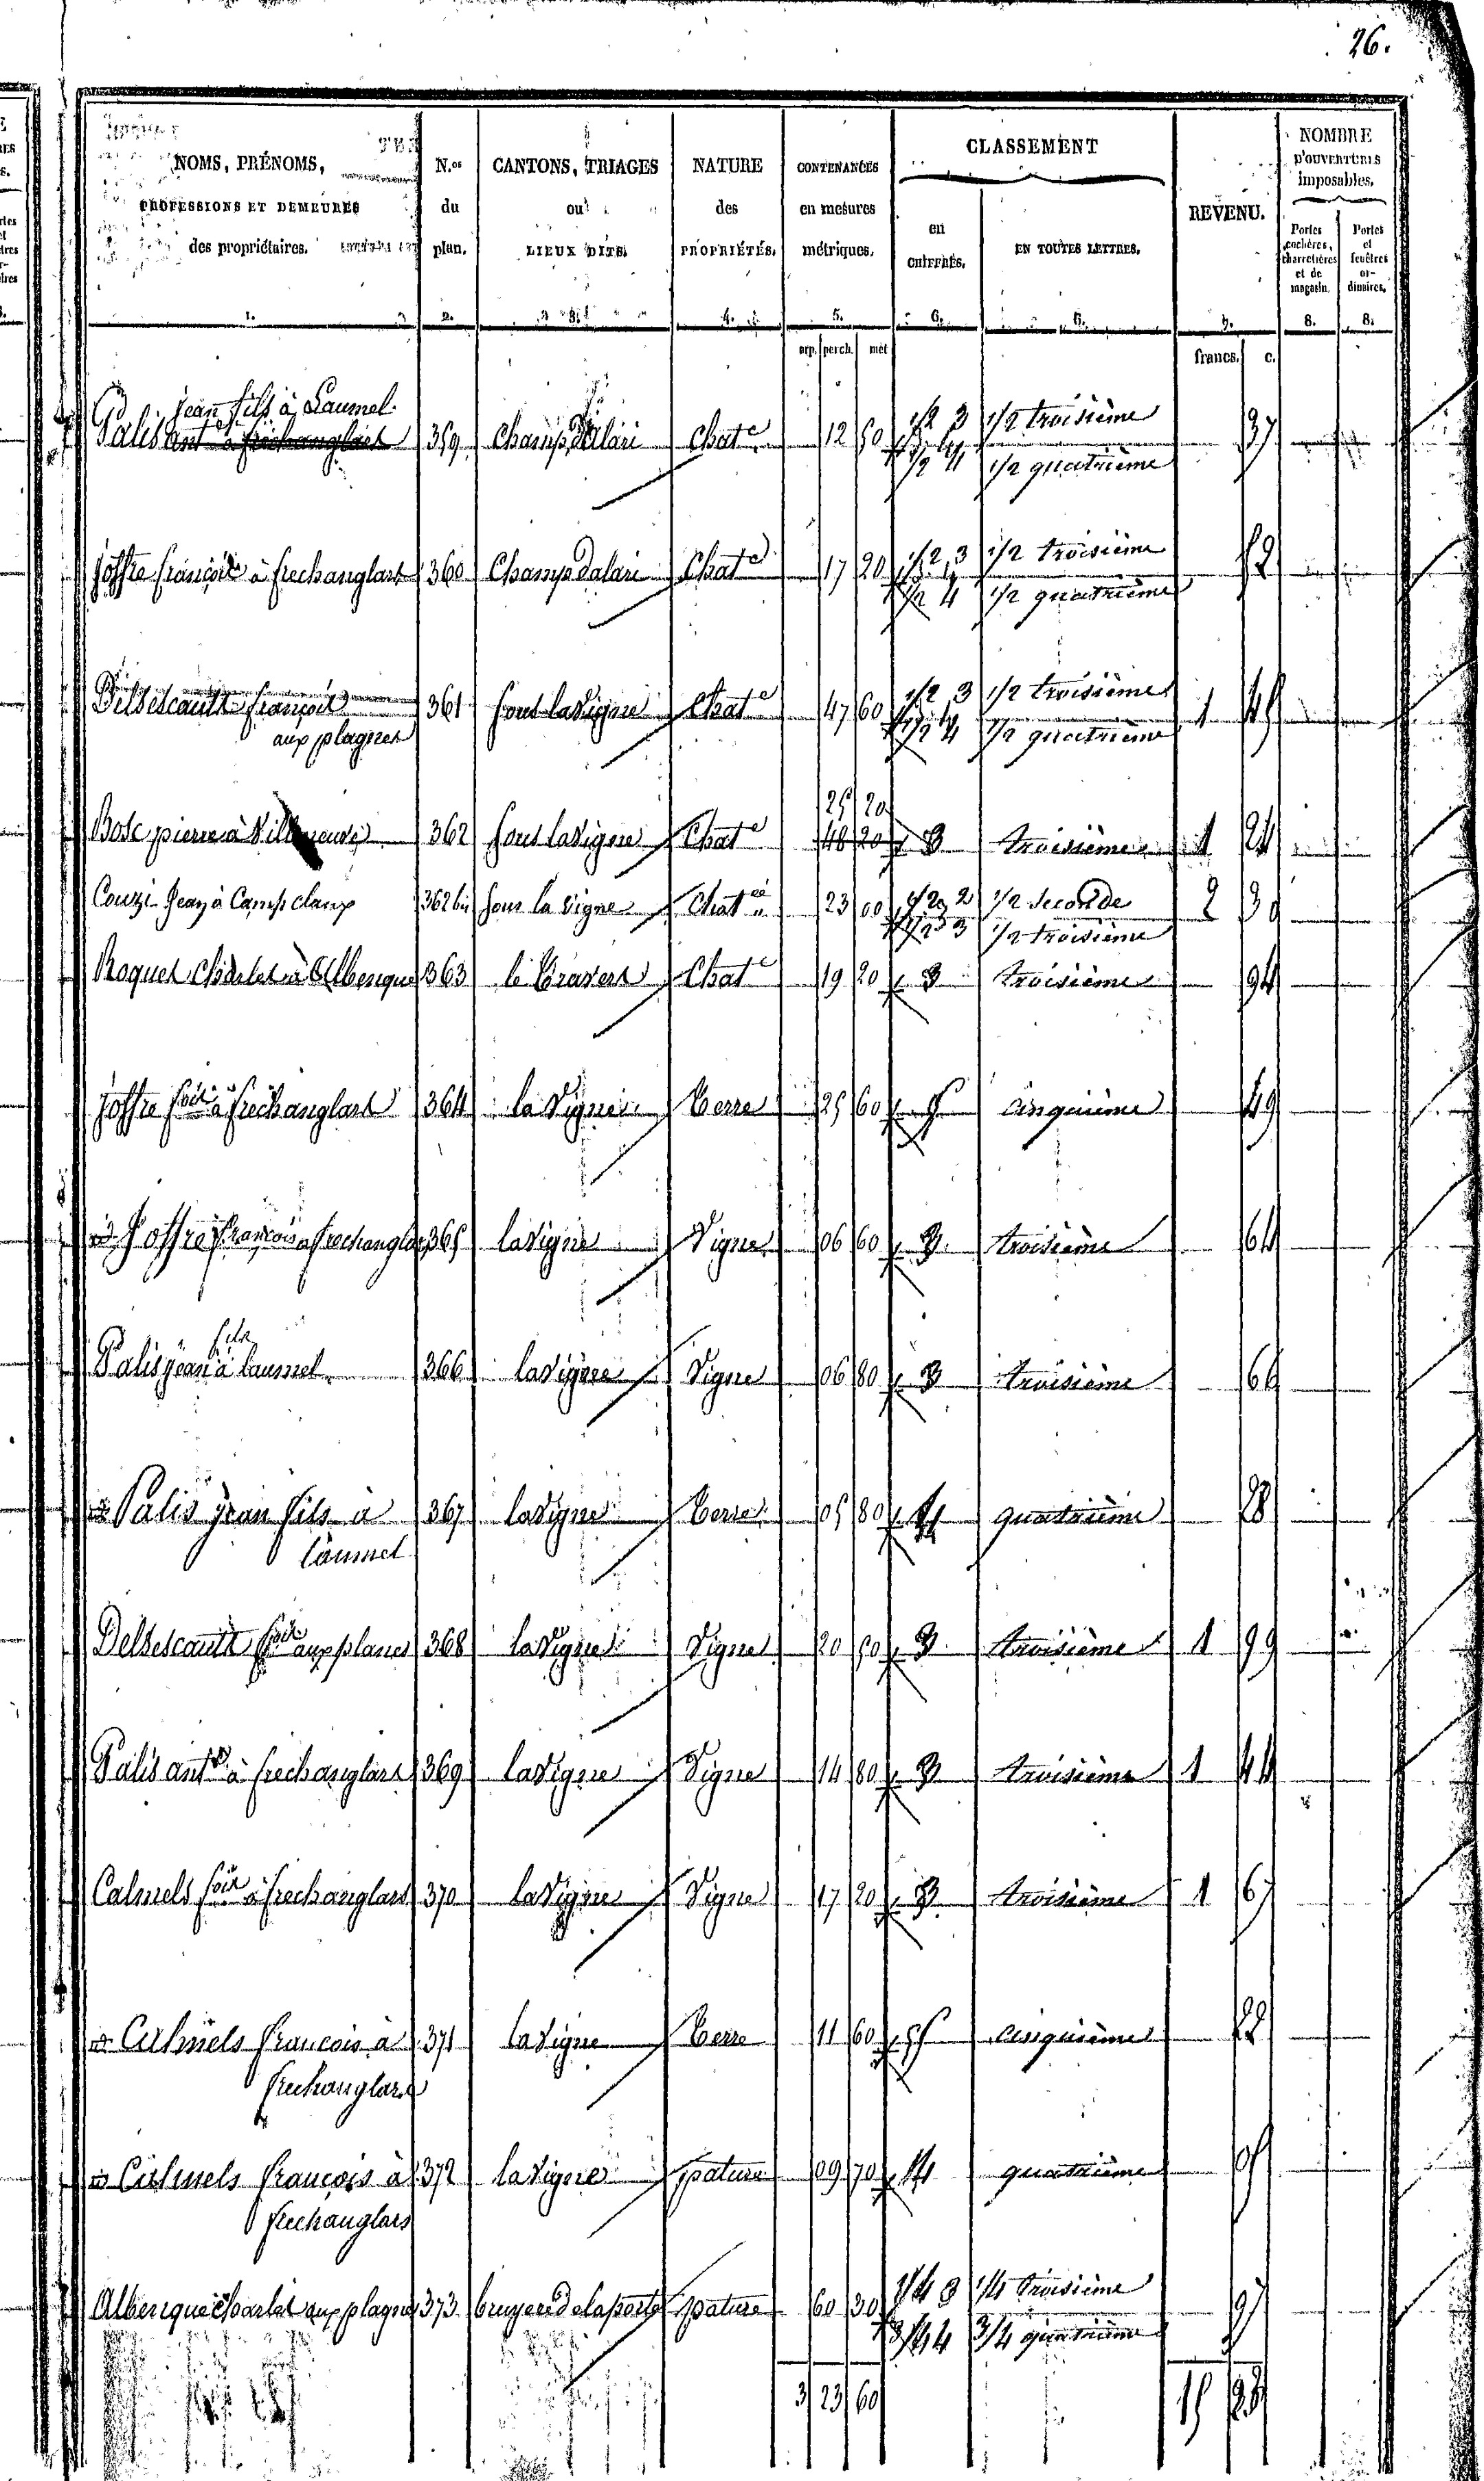 26.
NOMS, PRÉNOMS, PROFESSIONS ET DEMEURES des propriétaires. N.os du plan. CANTONS, TRIAGES ou LIEUX DITS. NATURE des PROPRIÉTÉS. CONTENANCES en mesures métriques. CLASSEMENT en CHIFFRES. EN TOUTES LETTRES. REVENU. NOMBRE D'OUVERTURES imposables. Portes cochères, charretières et de magasin. Portes et fenêtres ordinaires.
1. 2. 3. 4. 5. 6. 6. 7. 8. 8.
arp. perch. mèt francs. c.
jean fils à Laumel
Palis ant à frechanglars 359 Champ dalari Chate 12 50 1/2 3 1/2 troisième 37
1/2 4 1/2 quatrième
joffre françois à frechanglars 360 Champ dalari Chate 17 20 1/2 3 1/2 troisième 52
1/2 4 1/2 quatrième
Delsescautx françois 361 sous la vigne Chate 47 60 1/2 3 1/2 troisième 1 45
aux plagnes 1/2 4 1/2 quatrième
25 20
Bosc pierre à Villeneuve 362 sous la vigne Chate 48 20 3 troisième 1 24
Couzi Jean à Camp claux 362 bis sous la vigne Chat 23 00 1/2 2 1/2 seconde 2 30
1/2 3 1/2 troisième
Roques Charles à Albenque 363 le travers Chate 19 20 3 troisième 94
joffre fois à frechanglars 364 la vigne terre 25 60 5 cinquième 49
Joffre françois à frechanglars 365 la vigne Vigne 06 60 3 troisième 64
fils
Palis jean à laumel 366 la vigne Vigne 06 80 3 troisième 66
Palis jean fils à 367 la vigne terre 05 80 4 quatrième 28
laumel
Delsescautx fois aux planes 368 la vigne Vigne 20 50 3 troisième 1 99
Palis ante à frechanglars 369 la vigne Vigne 14 80 3 troisième 1 44
Calmels fois à frechanglars 370 la vigne Vigne 17 20 3 troisième 1 67
Calmels francois à 371 la vigne terre 11 60 5 cinquième 22
frechanglars
Calmels françois à 372 la vigne pature 09 70 4 quatrième 05
frechanglars
Albenque Charles aux plagnes 373 bruyere de la porte pature 60 30 1/4 3 1/4 troisième 97
3/4 4 3/4 quatrième
3 23 60 15